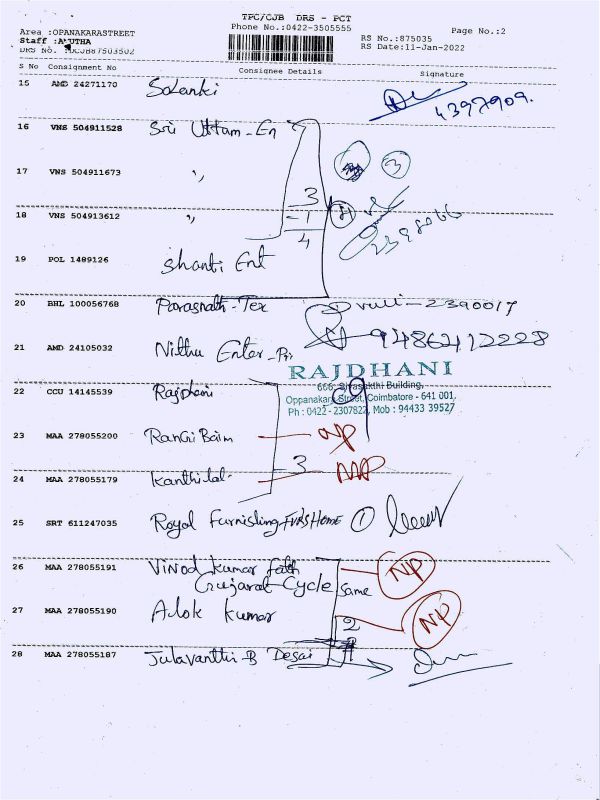 TPC/CJB DRS - PCT
Area :OPANAKARASTREET
Phone No.:0422-3505555
Page No.:2
Staff :AMUTHA
RS No.:875035
DRS No. :DCJB87503502
RS Date:11-Jan-2022
S No Consignment No Consignee Details Signature
15 AMD 24271170 Solanki
4397909.
16 VNS 504911528 Sri Uttam-En
17 VNS 504911673 ,, 3
3
18 VNS 504913612 ,, -1
4
19 POL 1489126 Shanti Ent
20 BHL 100056768 Parasnath-Tex 2390017
21 AMD 24105032 Nithu Enter-Pri 9486412228
RAJDHANI
666, Sivasakthi Building,
22 CCU 14145539 Rajdhani
Oppanakara Street, Coimbatore - 641 001.
Ph : 0422 - 2307822, Mob : 94433 39527
23 MAA 278055200 Rangi Baim NP
3
24 MAA 278055179 Kanthilal- NP
25 SRT 611247035 Royal Furnishing-FVRS HOME 1
26 MAA 278055191 Vinod kumar fath NP
Gujarat Cycle same
27 MAA 278055190 Alok kumar 2 NP
28 MAA 278055187 Julavanthi-B Desai